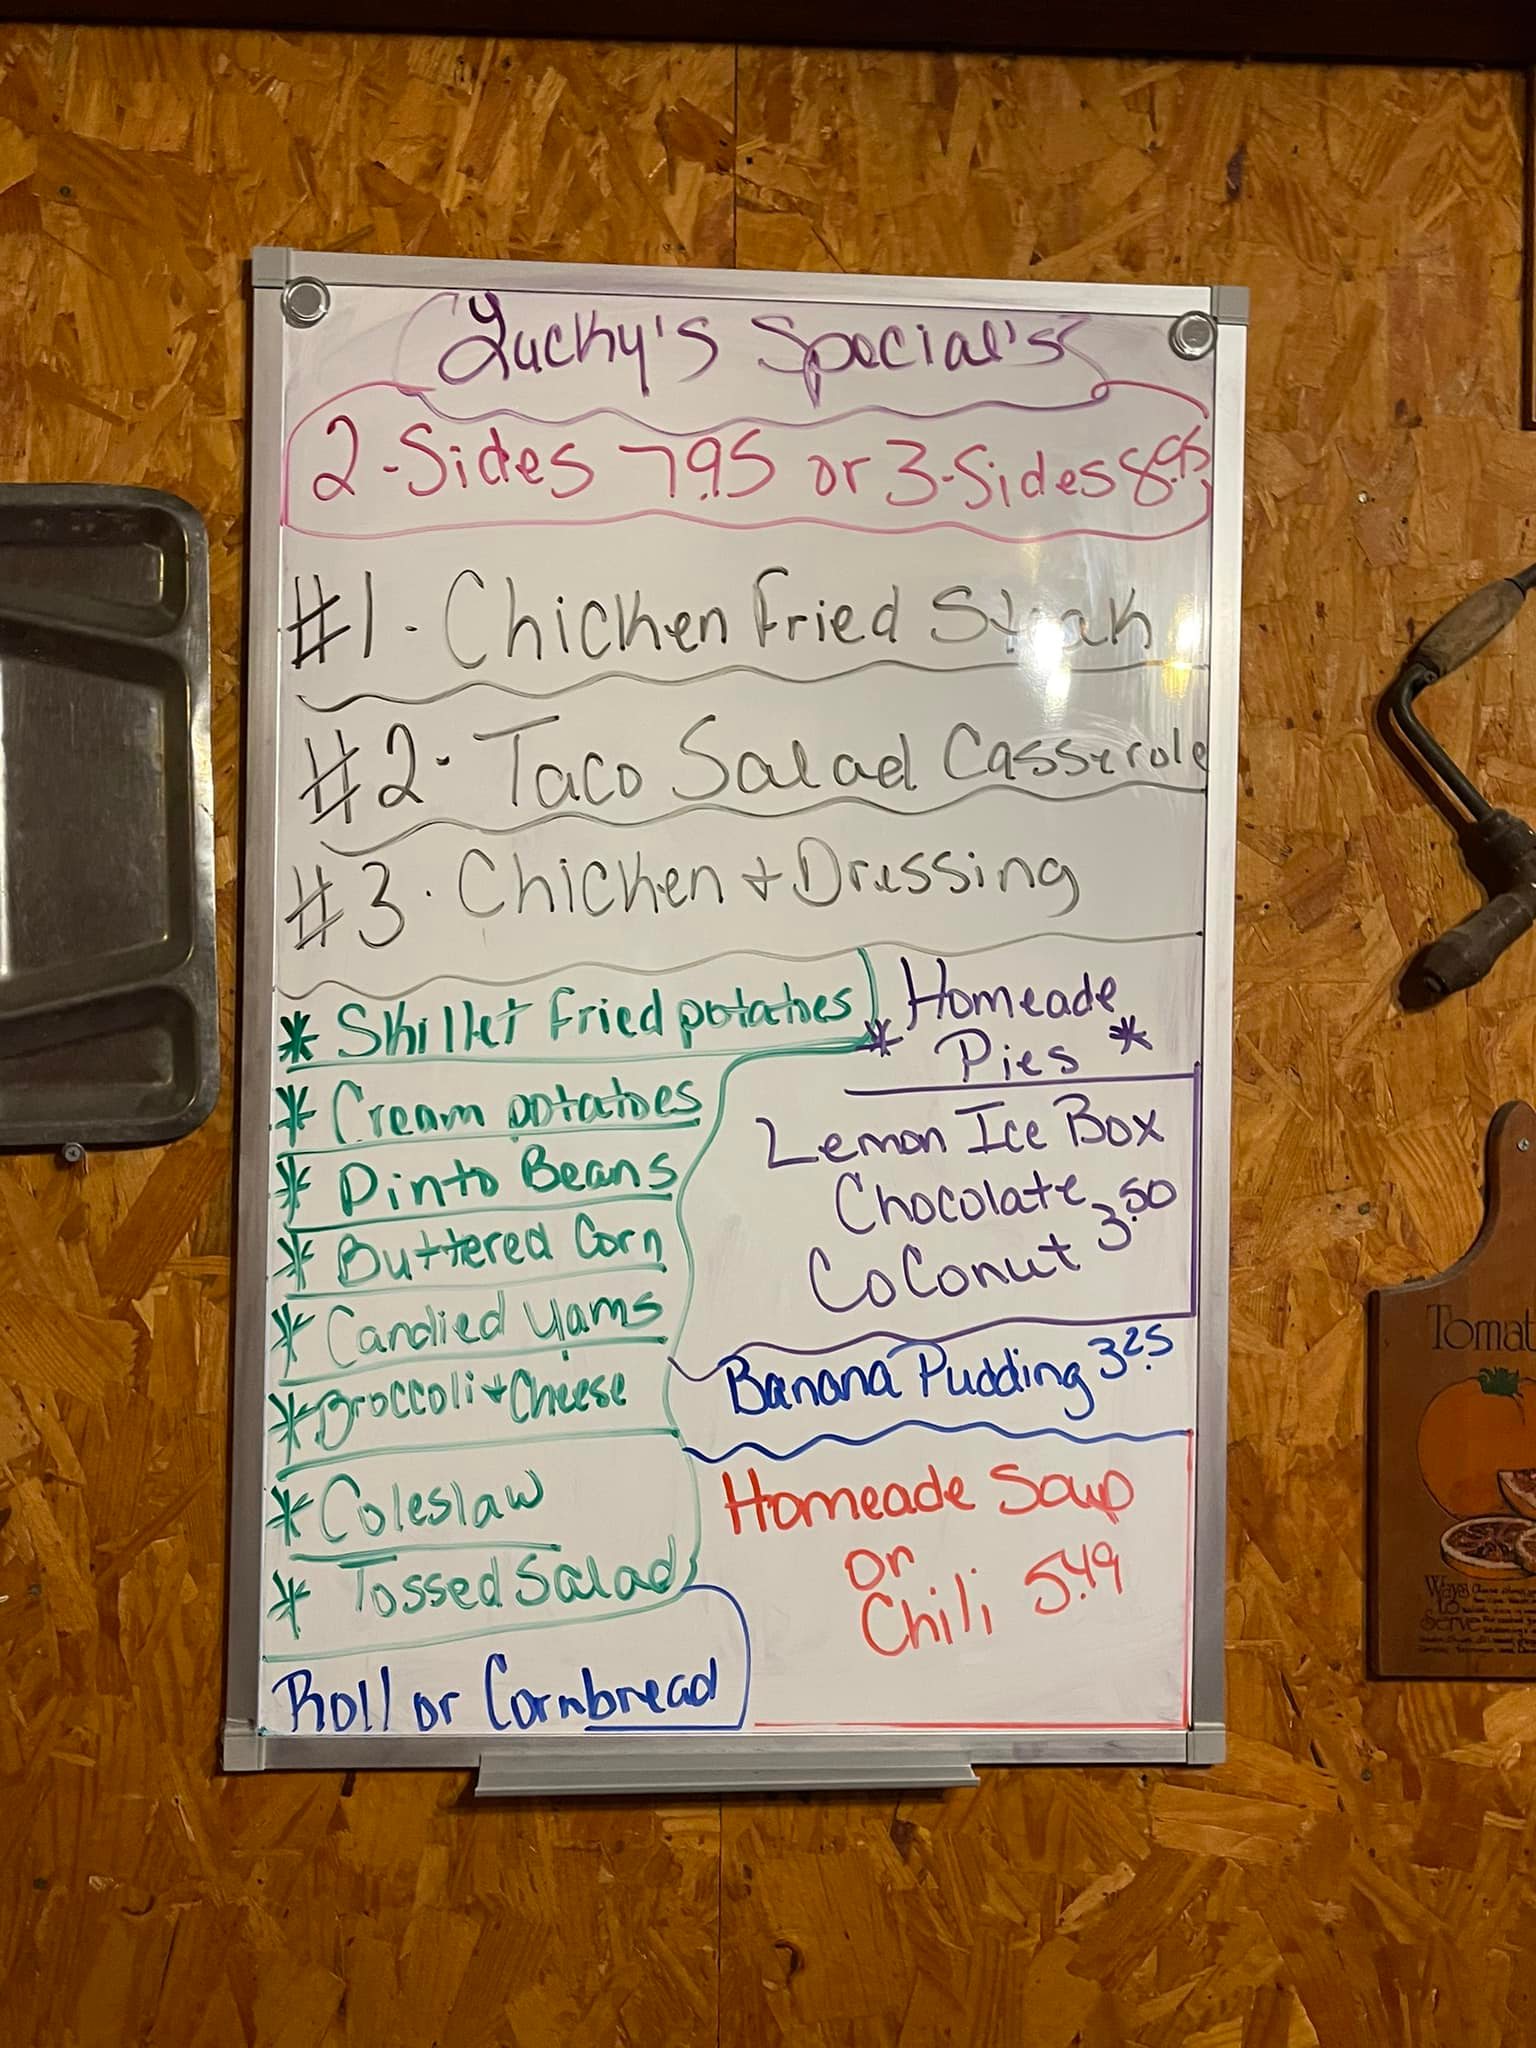 Lucky's Special's
2-Sides 7.95 or 3-Sides 8.95
#1. Chicken Fried Steak
#2. Taco Salad Casserole
#3. Chicken + Dressing
* Skillet Fried potatoes
* Cream potatoes
* Pinto Beans
* Buttered Corn
* Candied yams
* Broccoli + Cheese
* Coleslaw
* Tossed Salad
Roll or Cornbread
* Homeade
Pies *
Lemon Ice Box
Chocolate
Coconut 3.50
Banana Pudding 3.25
Homeade Soup
or
Chili 5.49
Tomat
Ways
to
Serve